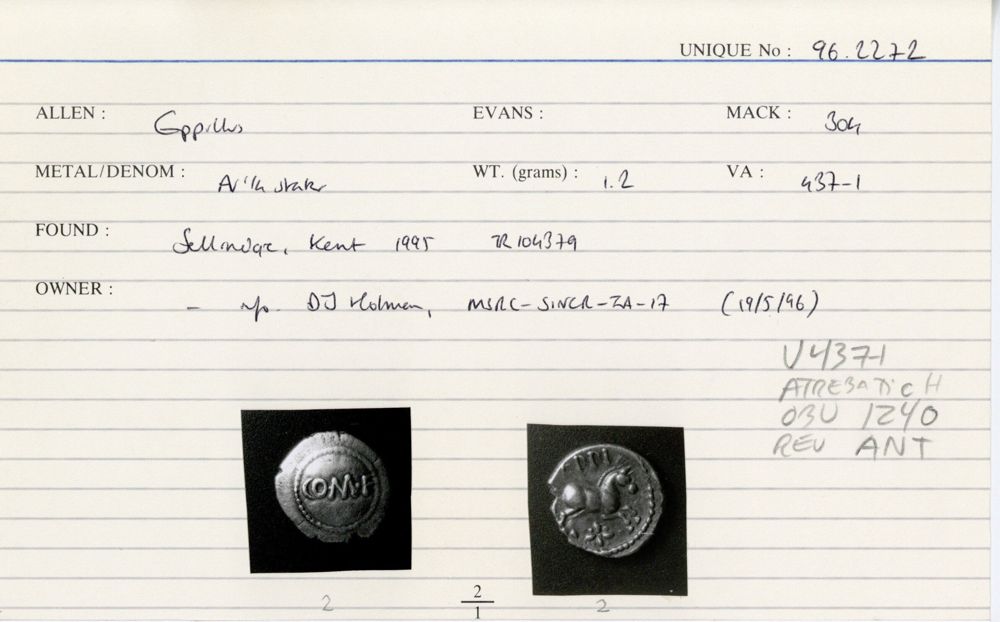 UNIQUE No : 96.2272
ALLEN : Eppillus EVANS : MACK : 304
METAL/DENOM : AV 1/4 stater WT. (grams) : 1.2 VA : 437-1
FOUND : Sellindge, Kent 1995 TR 104379
OWNER : - DJ Holman, MSRC-SINCR-ZA-17 (19/5/96)
V437-1
ATREBATIC H
OBV 1240
REV ANT
COMF
PPI
2 2/1 2